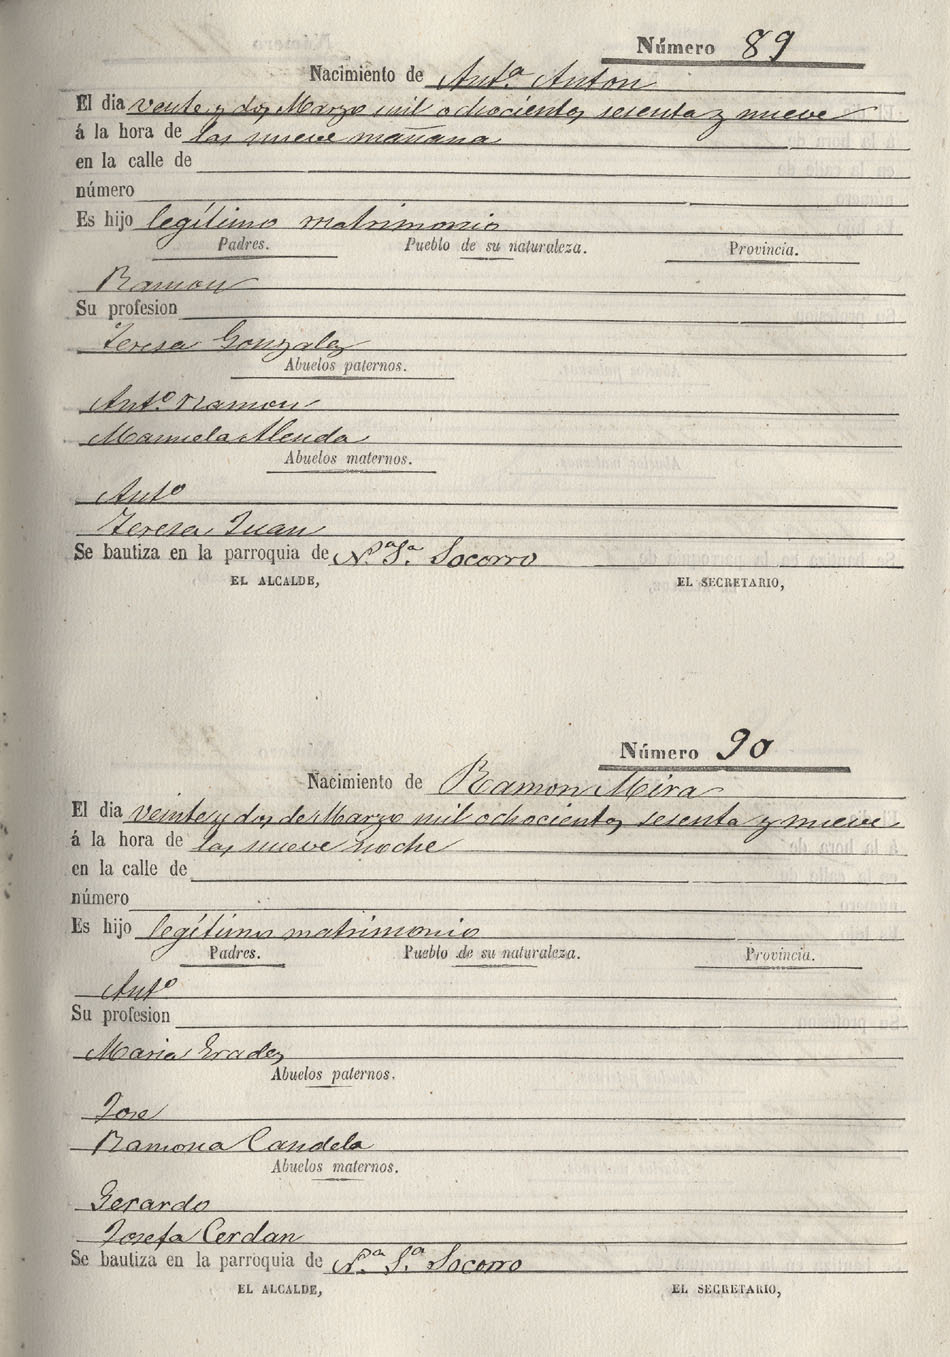 Número 89
Nacimiento de Antª Anton
El dia vente y dos Marzo mil ochocientos sesenta y nueve
á la hora de las nueve mañana
en la calle de
número
Es hijo legítimo matrimonio
Padres. Pueblo de su naturaleza. Provincia.
Ramon
Su profesion
Teresa Gonzalez
Abuelos paternos.
Antº Ramon
Manuela Alenda
Abuelos maternos.
Antº
Teresa Juan
Se bautiza en la parroquia de Nª Sª Socorro
EL ALCALDE, EL SECRETARIO,
Número 90
Nacimiento de Ramon Mira
El dia veinte y dos de Marzo mil ochocientos sesenta y nueve
á la hora de las nueve noche
en la calle de
número
Es hijo legítimo matrimonio
Padres. Pueblo de su naturaleza. Provincia.
Antº
Su profesion
Maria Erades
Abuelos paternos.
Jose
Ramona Candela
Abuelos maternos.
Gerardo
Josefa Cerdan
Se bautiza en la parroquia de Nª Sª Socorro
EL ALCALDE, EL SECRETARIO,